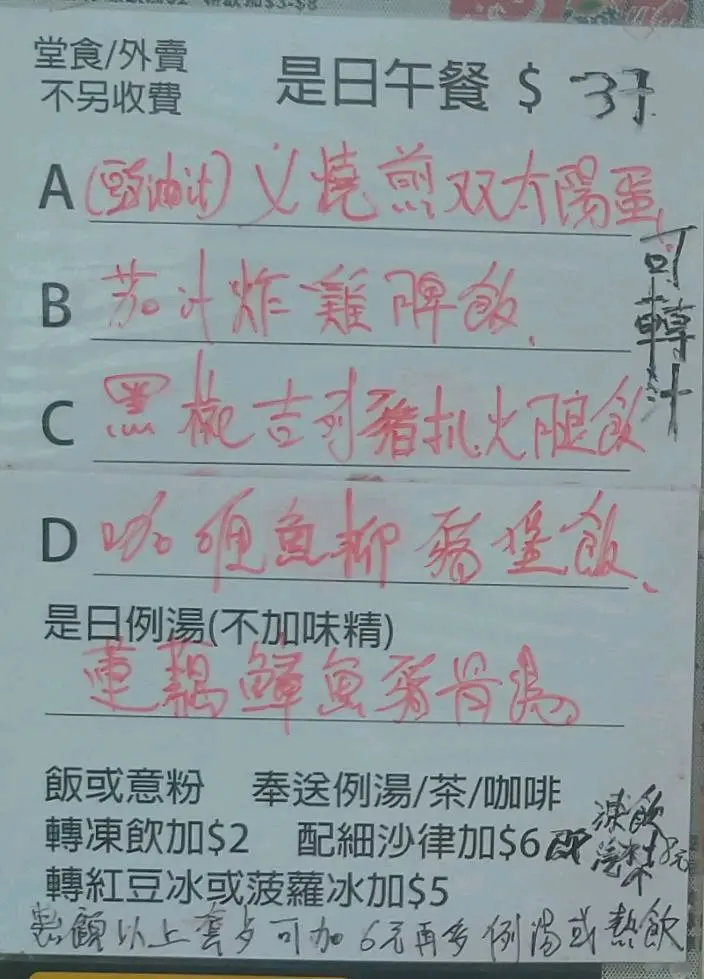 堂食/外賣
不另收費
是日午餐 $ 37.
A (豉油汁) 义燒煎双太陽蛋
B 茄汁炸雞脾飯
可轉汁
C 黑椒吉列豬扒火腿飯
D 咖喱魚柳豬堡飯
是日例湯(不加味精)
蓮藕鱆魚豬骨湯
飯或意粉 奉送例湯/茶/咖啡
轉凍飲加$2 配細沙律加$6
凍飲
轉紅豆冰或菠蘿冰加$5
以上套 可加6元再多例湯或熱飲